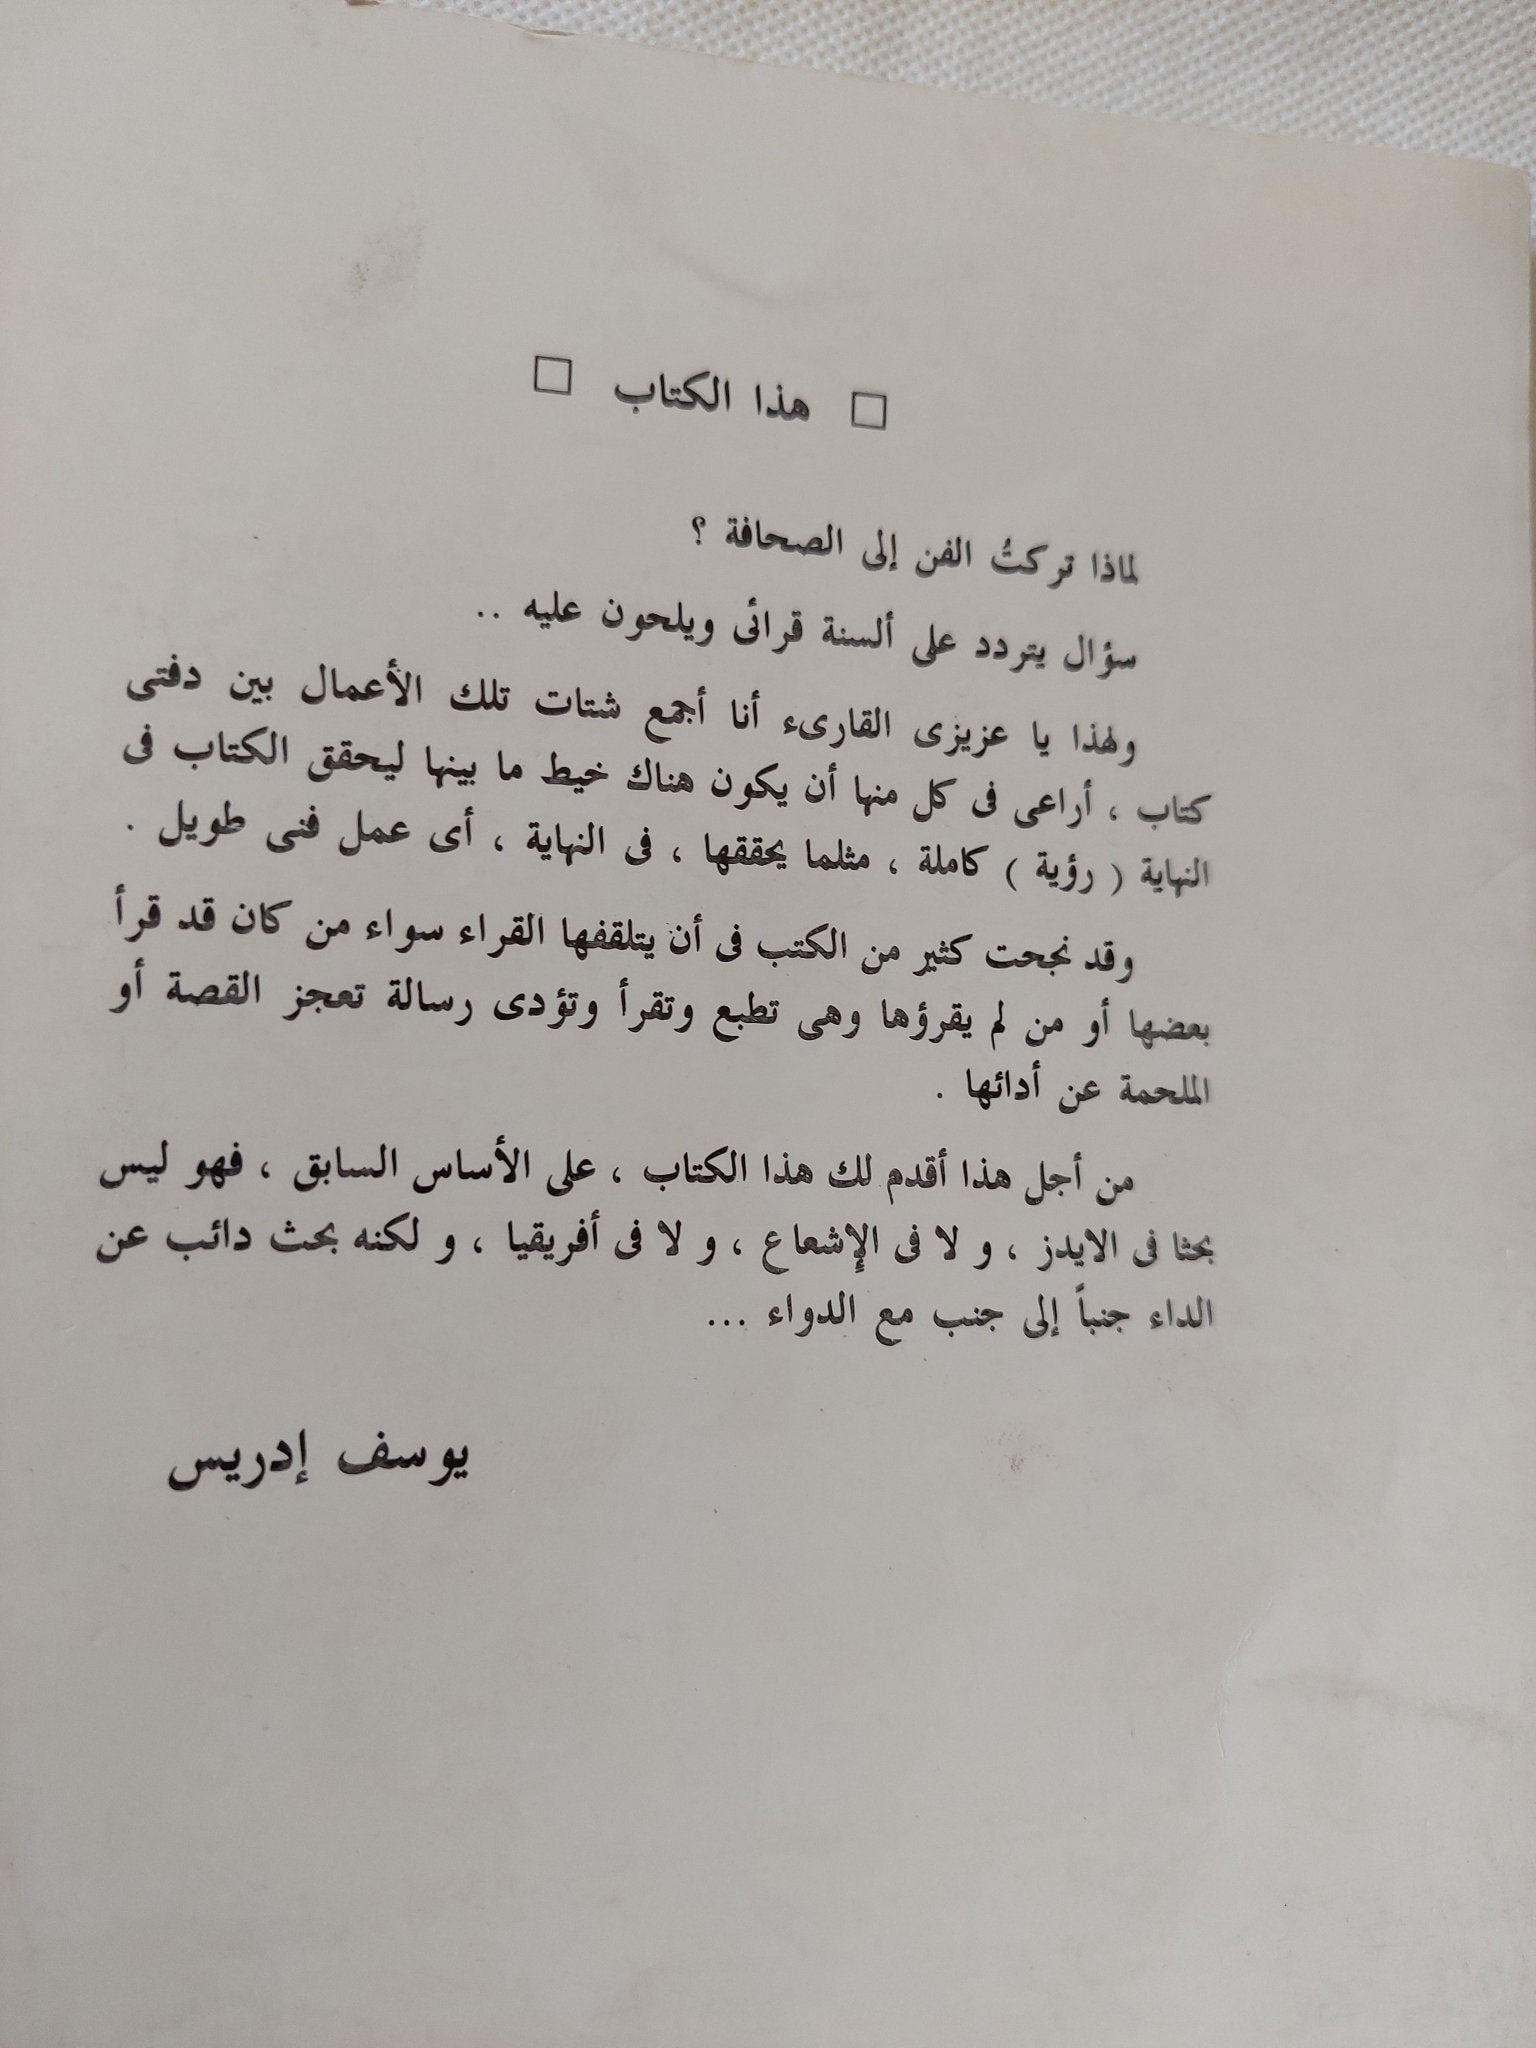 □ هذا الكتاب □
لماذا تركتُ الفن إلى الصحافة ؟
سؤال يتردد على ألسنة قرائى ويلحون عليه ..
ولهذا يا عزيزى القارىء أنا أجمع شتات تلك الأعمال بين دفتى
كتاب ، أراعى فى كل منها أن يكون هناك خيط ما بينها ليحقق الكتاب فى
النهاية ( رؤية ) كاملة ، مثلما يحققها ، فى النهاية ، أى عمل فنى طويل .
وقد نجحت كثير من الكتب فى أن يتلقفها القراء سواء من كان قد قرأ
بعضها أو من لم يقرؤها وهى تطبع وتقرأ وتؤدى رسالة تعجز القصة أو
الملحمة عن أدائها .
من أجل هذا أقدم لك هذا الكتاب ، على الأساس السابق ، فهو ليس
بحثا فى الايدز ، و لا فى الإشعاع ، و لا فى أفريقيا ، و لكنه بحث دائب عن
الداء جنباً إلى جنب مع الدواء ...
يوسف إدريس